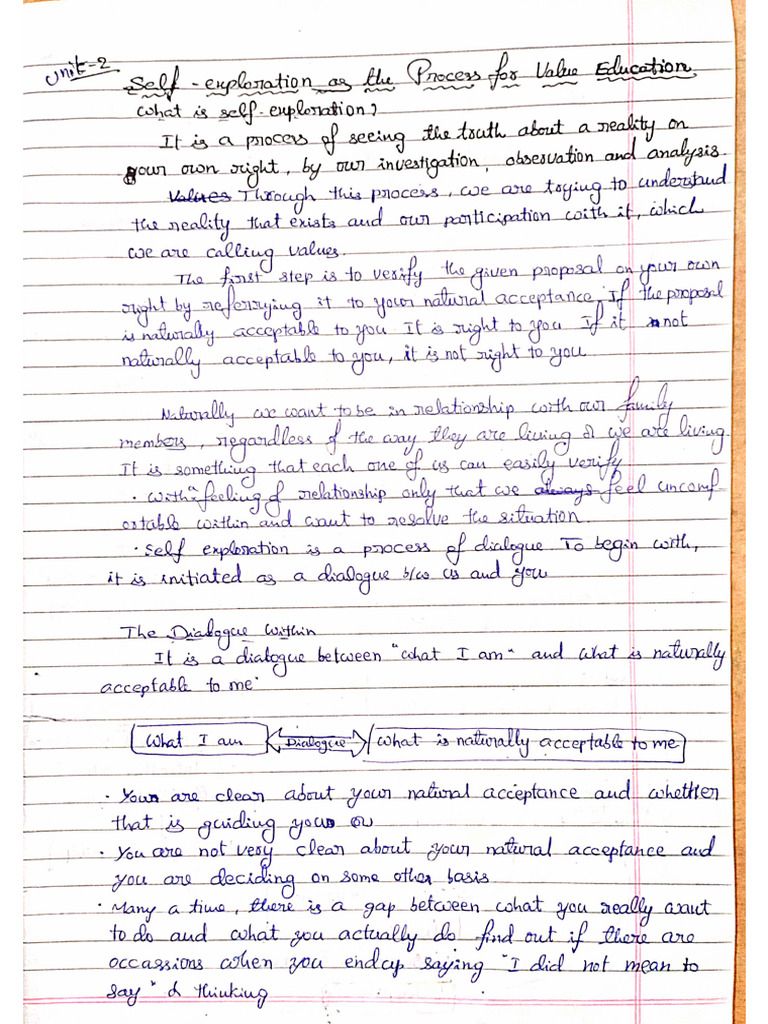 Unit-2
Self-exploration as the Process for Value Education
What is self-exploration?
It is a process of seeing the truth about a reality on
your own right, by our investigation, observation and analysis.
Values Through this process, we are trying to understand
the reality that exists and our participation with it, which
we are calling values.
The first step is to verify the given proposal on your own
right by referrying it to your natural acceptance, If the proposal
is naturally acceptable to you It is right to you If it is not
naturally acceptable to you, it is not right to you
Naturally we want to be in relationship with our family
members, regardless of the way they are living or we are living.
It is something that each one of us can easily verify
• With feeling of relationship only that we always feel uncomf
ortable within and want to resolve the situation.
• Self exploration is a process of dialogue To begin with,
it is initiated as a dialogue b/w us and you
The Dialogue Within
It is a dialogue between "what I am" and what is naturally
acceptable to me"
What I am Dialogue What is naturally acceptable to me
• You are clear about your natural acceptance and whether
that is guiding you or
• You are not very clear about your natural acceptance and
you are deciding on some other basis
• Many a time, there is a gap between what you really want
to do and what you actually do find out if there are
occassions when you endup saying "I did not mean to
say" & thinking